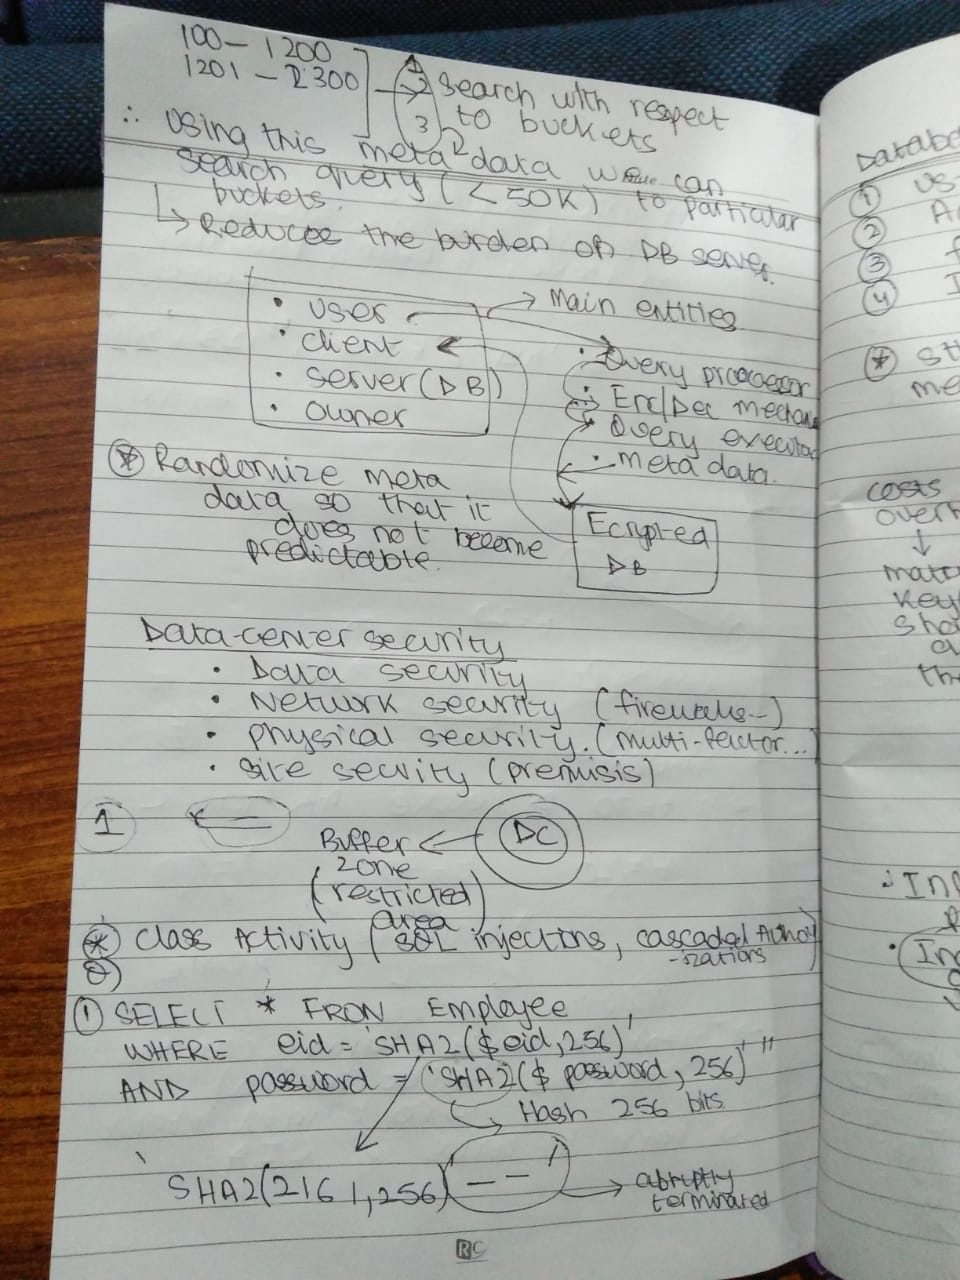 100 - 1200
1201 - 2300
1
2
3
Search with respect
to buckets
∴ Using this meta²data we can
search query (< 50K) to particular
buckets.
↳ Reduces the burden on DB server.
• user
• client
• server (DB)
• owner
→ Main entities
• Query processor
• Enc/Dec mechan
• Query executo
• meta data.
Ecrypted
DB
⊛ Randomize meta
data so that it
does not become
predictable.
Data-center security
• Data security
• Network security (firewalls--)
• Physical security. (multi-factor...)
• Site security (premisis)
1
DC
Buffer
zone
(restricted
area)
⊛ Class Activity (SQL injections, cascaded Authori
-zations)
① SELECT * FROM Employee
WHERE eid = 'SHA2($eid,256)'
AND password = 'SHA2($ password, 256)' "
Hash 256 bits.
SHA2(2161,256) -- '
→ abruptly
terminated
RC
Databa
① us
② A
③ f
④ I
⊛ St
me
costs
over
↓
matc
key
sho
a
the
• In
• In